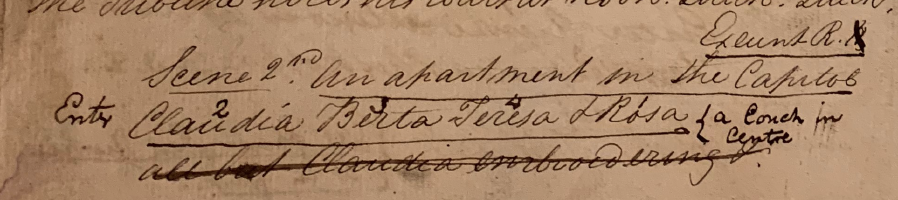 the Tribune
Exeunt R.
Scene 2nd. An apartment in the Capitol
Enter Claudia Berta Teresa & Rosa { a Couch in Centre
all but Claudia embroidering.